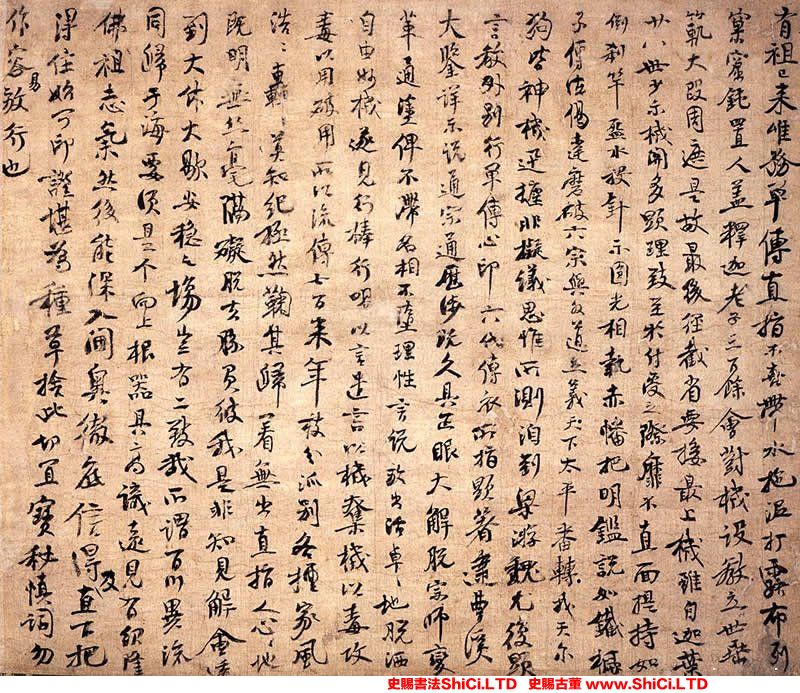 有祖已来唯務單傳直指不喜帶水拖泥打露布列
窠窟鈍置人蓋釋迦老子三百餘會對機設教立世垂
範大段周遮是故最後徑截省要接最上機雖自迦葉
廿八世少示機關多顯理致至於付受之際靡不直面提持如
倒刹竿盋水投針示圓光相執赤幡把明鑑說如鐵橛
子傳法偈達磨破六宗與外道立義天下太平番轉我天尔
狗皆神機迅捷非擬議思惟所測洎到梁游魏尤復顯
言教外別行單傳心印六代傳衣所指顯著逮曹溪
大鑒詳示說通宗通歷涉既久具正眼大解脫宗師變
革通塗俾不滯名相不墮理性言說放出活卓々地脫洒
自由妙機遂見行棒行喝以言遣言以機奪機以毒攻
毒以用破用所以流傳七百来年枝分派別各擅家風
浩々轟々莫知紀極然鞠其歸著無出直指人心々地
既明無絲毫隔礙脫去勝負彼我是非知見解會透
到大休大歇安穩之場豈有二致哉所謂百川異流
同歸于海要須是个向上根器具高識遠見有紹隆
佛祖志氣然後能深入閫奧徹底信得及直下把
得住始可印證堪為種草捨此切宜寶秘慎詞勿
作容易放行也
史賜書法ShiCi.LTD 史賜古董 www.ShiCi.LTD